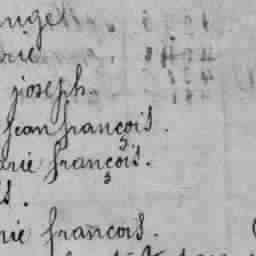 ange
rie
joseph.
jean françois.
arie françois.
is.
rie francois.